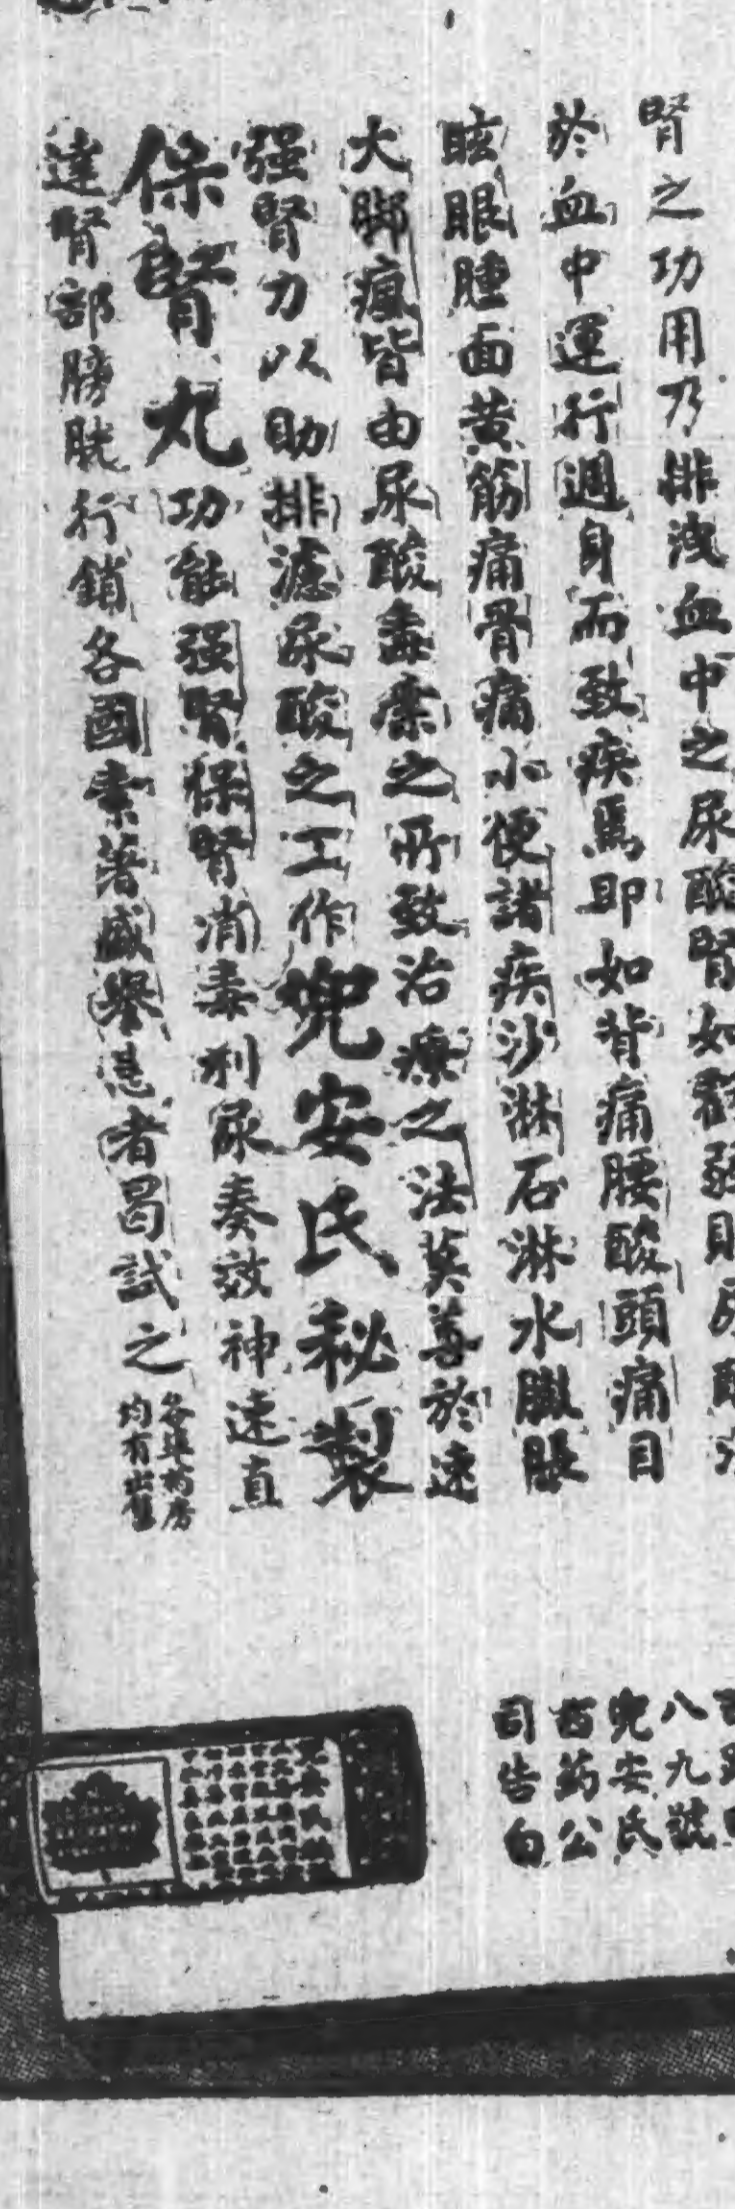 腎之功用乃排洩血中之尿酸腎如
於血中運行週身而致疾焉即如背痛腰酸頭痛目
眩眼腫面黃筋痛骨痛小便諸疾沙淋石淋水臌脹
大脚瘋皆由尿酸毒素之所致治療之法莫善於速
强腎力以助排濾尿酸之工作兜安氏秘製
保腎丸功能强腎保腎消毒利尿奏效神速直
達腎部膀胱行銷各國素著盛譽患者曷試之
各埠葯房
均有出售
八九號
兜安氏
西葯公
司告白